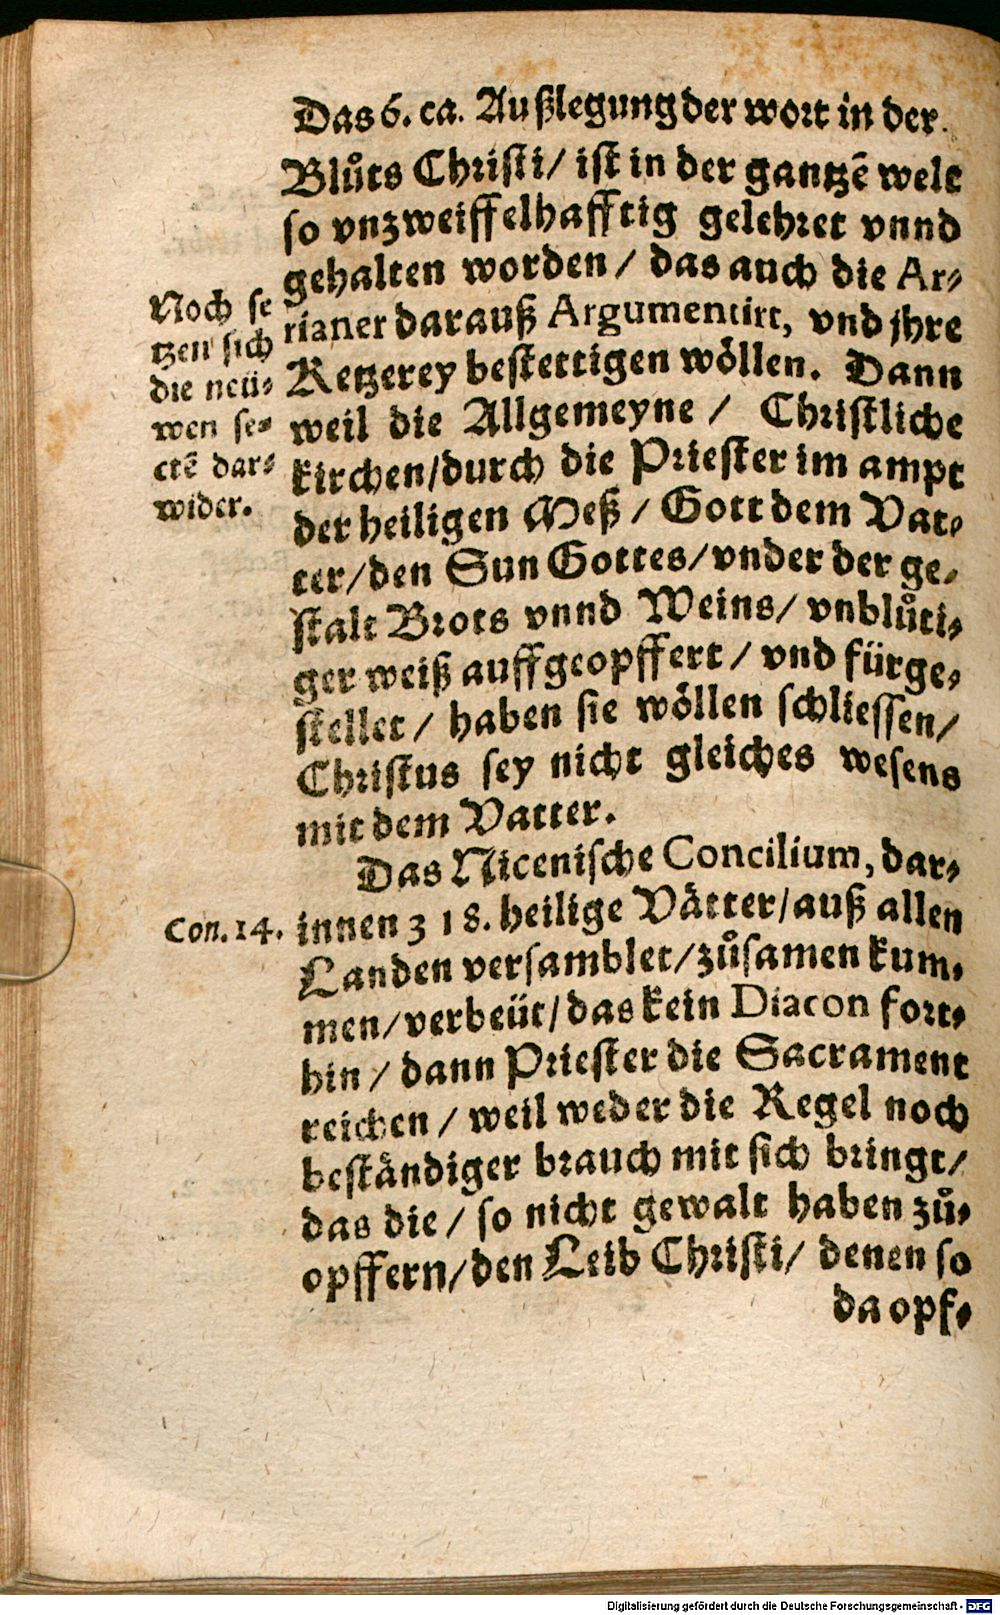 Das 6. ca. Außlegung der wort in der
Blůts Christi/ ist in der gantzē welt
so vnzweiffelhafftig gelehret vnnd
gehalten worden/ das auch die Ar-
rianer darauß Argumentirt, vnd jhre
Ketzerey bestettigen wöllen. Dann
weil die Allgemeyne/ Christliche
kirchen/durch die Priester im ampt
der heiligen Meß/ Gott dem Vat-
ter/den Sun Gottes/vnder der ge-
stalt Brots vnnd Weins/ vnblůti-
ger weiß auffgeopffert/ vnd fürge-
stellet/ haben sie wöllen schliessen/
Christus sey nicht gleiches wesens
mit dem Vatter.
Noch se
tzen sich
die neü-
wen se-
ctē dar-
wider.
Das Nicenische Concilium, dar-
innen 318. heilige Vätter/auß allen
Landen versamblet/zůsamen kum-
men/verbeüt/das kein Diacon fort-
hin/ dann Priester die Sacrament
reichen/ weil weder die Regel noch
beständiger brauch mit sich bringt/
das die/ so nicht gewalt haben zů-
opffern/den Leib Christi/ denen so
da opf-
Con. 14.
Digitalisierung gefördert durch die Deutsche Forschungsgemeinschaft - DFG